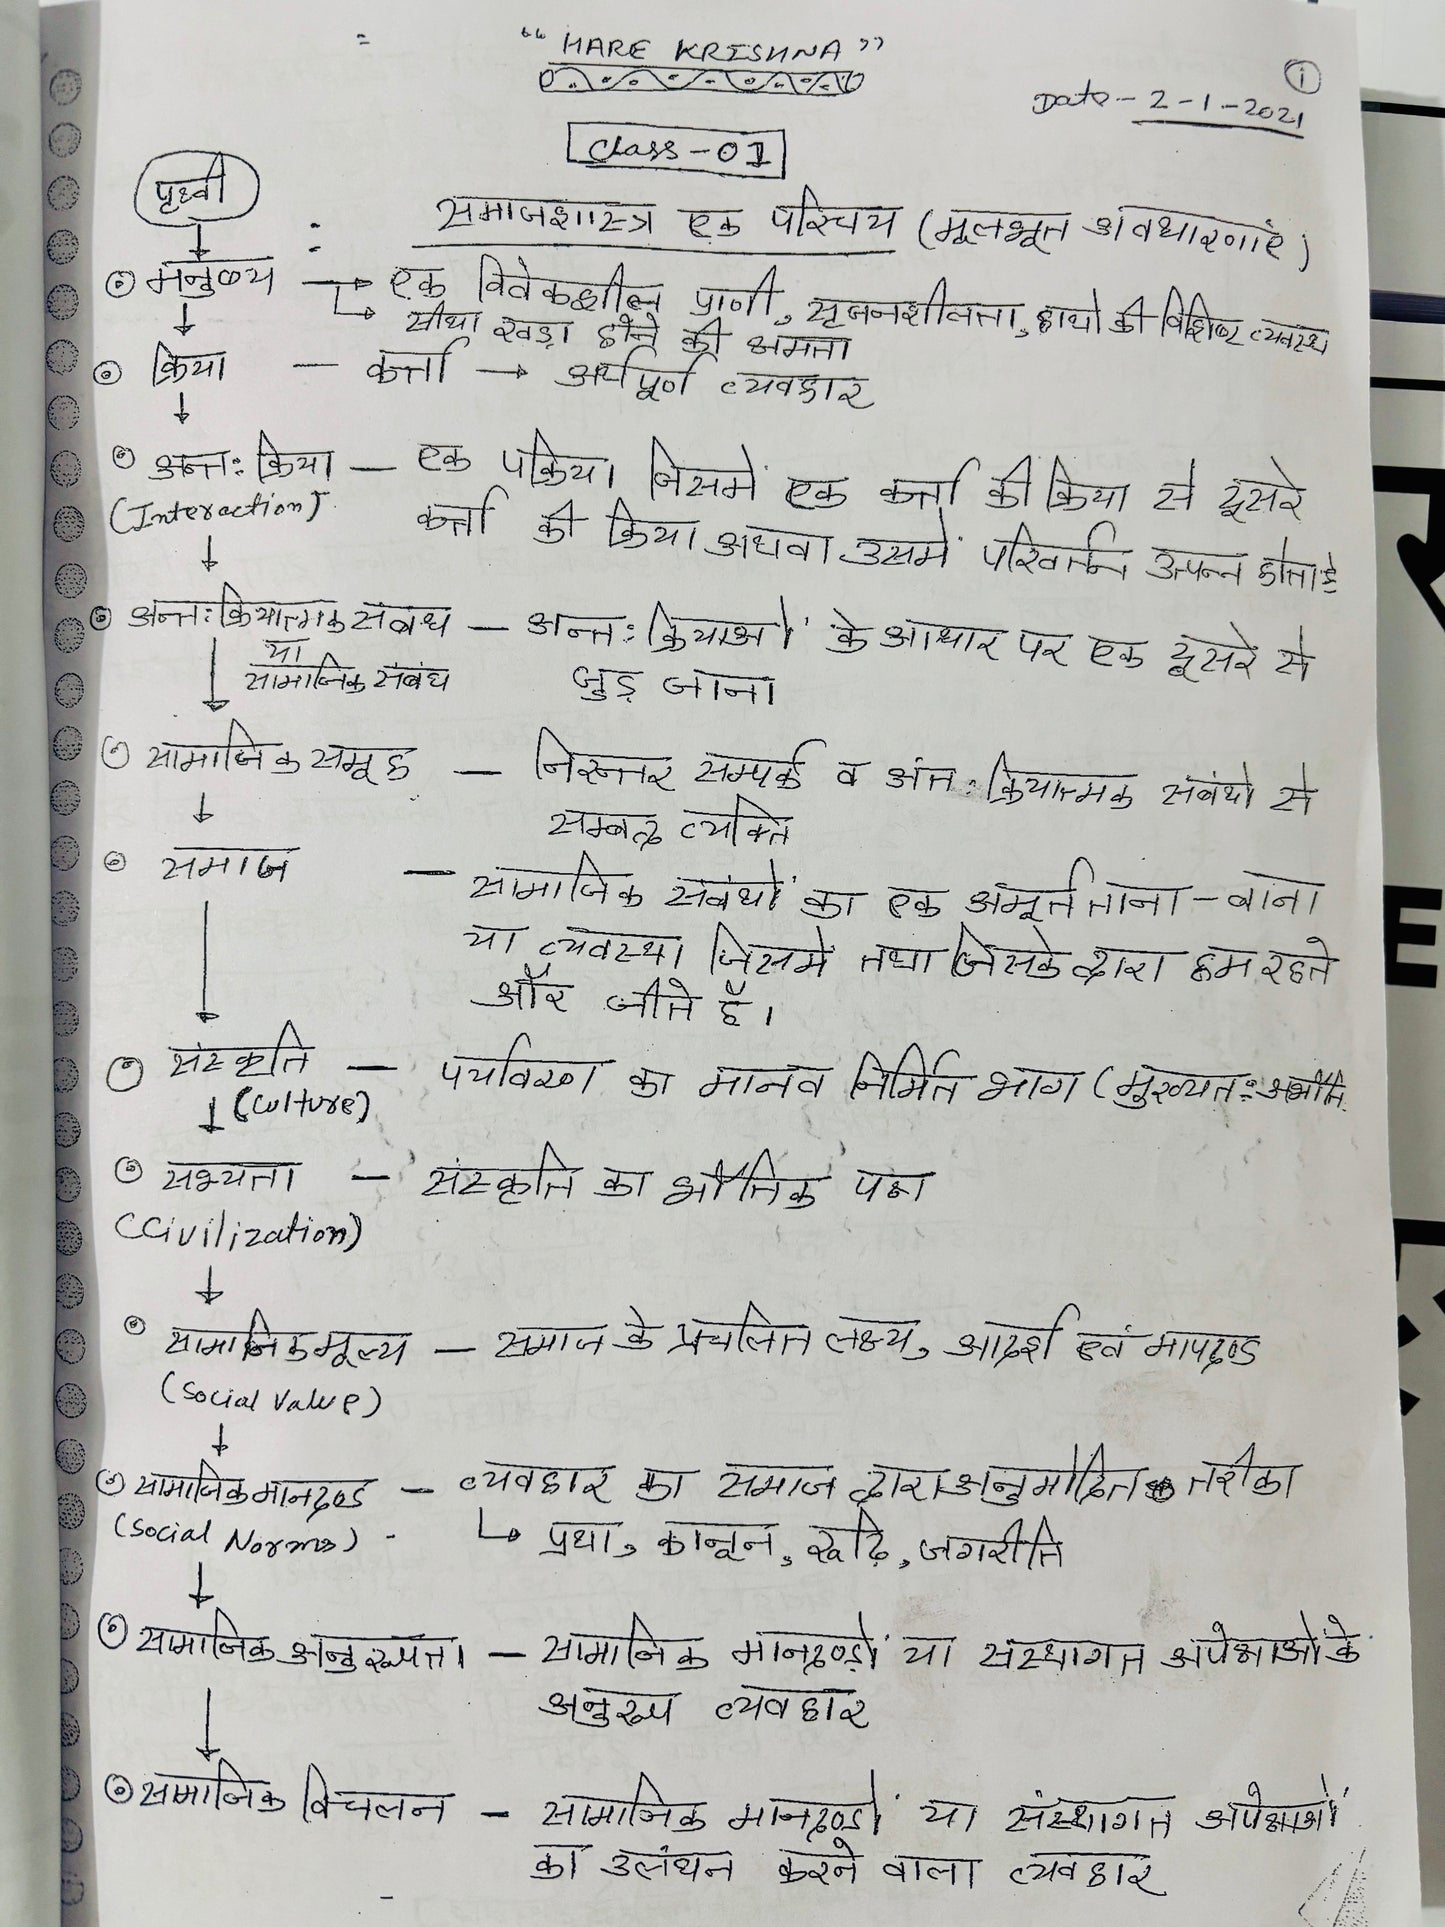 “HARE KRISHNA”
1
Date - 2-1-2021
Class-01
पृथ्वी
समाजशास्त्र एक परिचय (मूलभूत अवधारणाएं)
मनुष्य → एक विवेकशील प्राणी, सृजनशीलता, हाथो की विशिष्ट व्यवस्थ
सीधा खड़ा होने की क्षमता
क्रिया — कर्त्ता → अर्थपूर्ण व्यवहार
अन्तः क्रिया — एक पक्रिया जिसमें एक कर्त्ता की क्रिया से दूसरे
(Interaction) कर्त्ता की क्रिया अथवा उसमें परिवर्तन उत्पन्न होता है
अन्तः क्रियात्मक संबंध — अन्तः क्रियाओं के आधार पर एक दूसरे से
या
सामाजिक संबंध जुड़ जाना
सामाजिक समूह — निरन्तर सम्पर्क व अंतःक्रियात्मक संबंधो से
सम्बद्ध व्यक्ति
समाज — सामाजिक संबंधों का एक अमूर्त ताना-बाना
या व्यवस्था जिसमें तथा जिसके द्वारा हम रहते
और जीते हैं।
संस्कृति — पर्यावरण का मानव निर्मित भाग (मुख्यतः
(Culture)
सभ्यता — संस्कृति का भौतिक पक्ष
(Civilization)
सामाजिक मूल्य — समाज के प्रचलित लक्ष्य, आदर्श एवं मापदण्ड
(Social Value)
सामाजिक मानदण्ड — व्यवहार का समाज द्वारा अनुमोदित तरीका
(Social Norms) प्रथा, कानून, रूढ़ि, जगरीति
सामाजिक अनुरूपता — सामाजिक मानदण्डों या संस्थागत अपेक्षाओं के
अनुरूप व्यवहार
सामाजिक विचलन — सामाजिक मानदण्डों या संस्थागत अपेक्षाओं
का उलंघन करने वाला व्यवहार